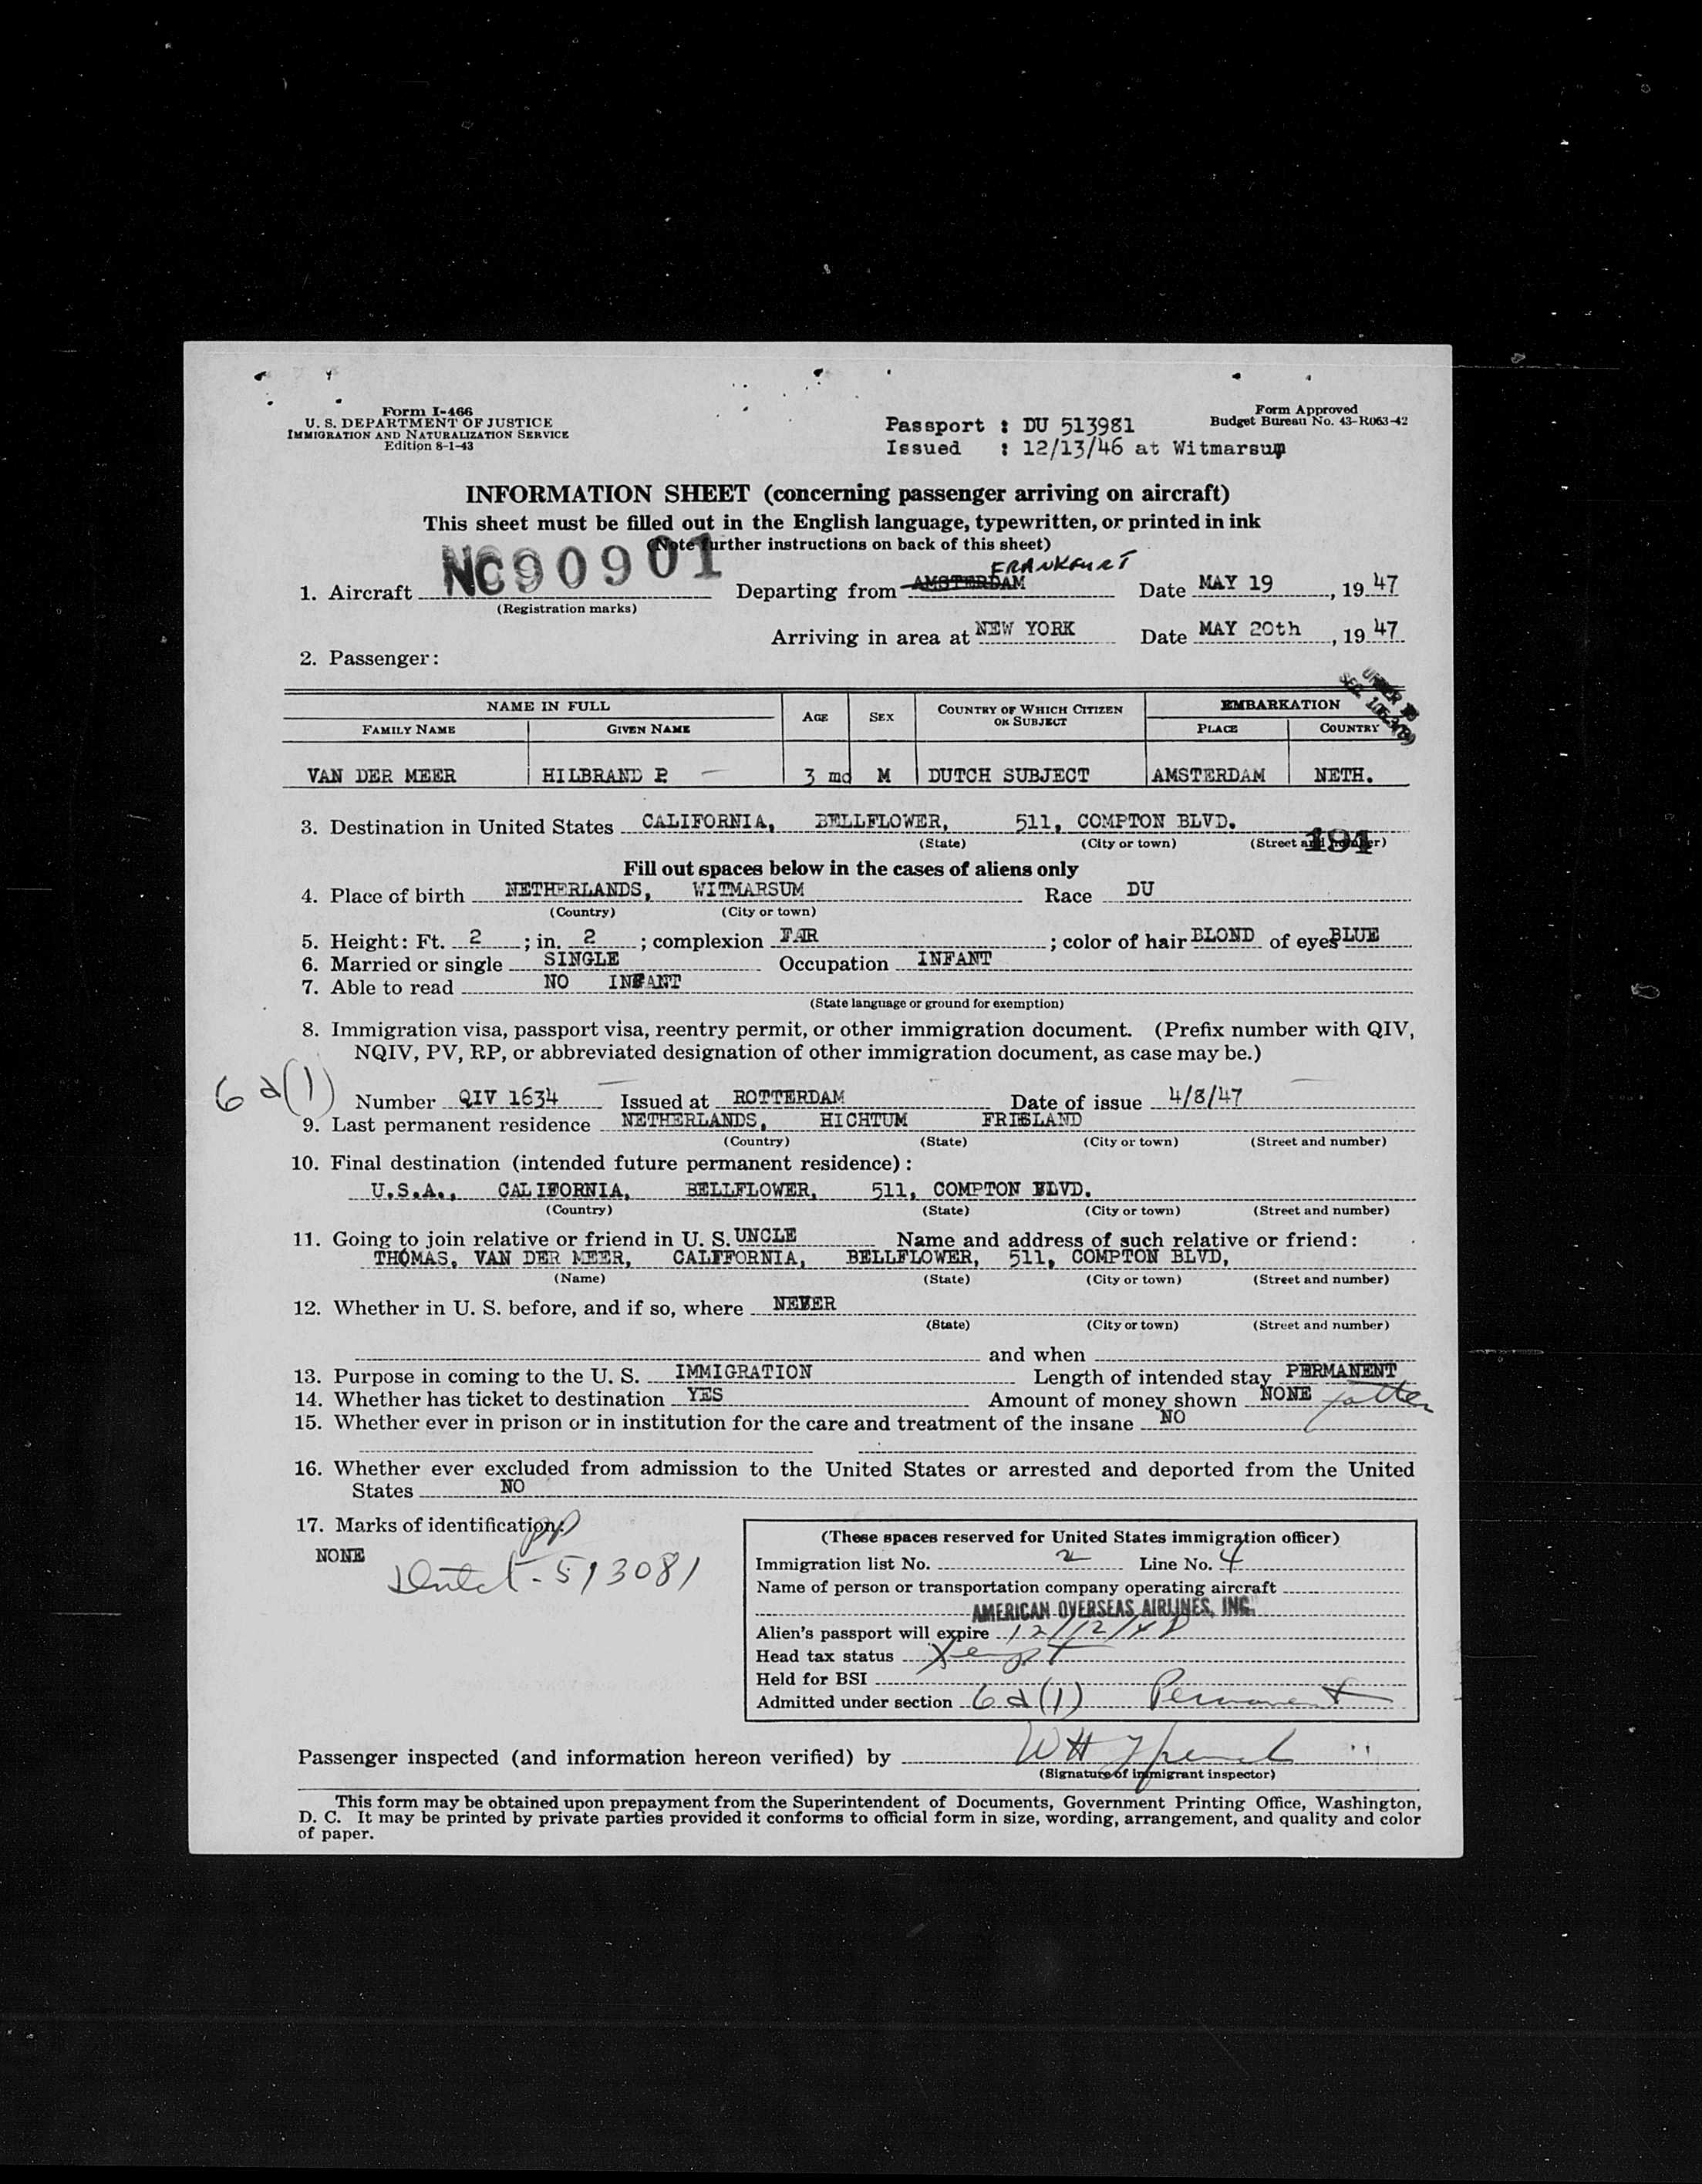 Form I-466
U. S. DEPARTMENT OF JUSTICE
IMMIGRATION AND NATURALIZATION SERVICE
Edition 8-1-43
Passport : DU 513981
Issued : 12/13/46 at Witmarsum
Form Approved
Budget Bureau No. 43-R063-42
INFORMATION SHEET (concerning passenger arriving on aircraft)
This sheet must be filled out in the English language, typewritten, or printed in ink
(Note further instructions on back of this sheet)
FRANKFURT
1. Aircraft NC90901 Departing from AMSTERDAM Date MAY 19, 1947
(Registration marks)
Arriving in area at NEW YORK Date MAY 20th, 1947
2. Passenger:
UNDER 16
NAME IN FULL AGE SEX COUNTRY OF WHICH CITIZEN OR SUBJECT EMBARKATION
FAMILY NAME GIVEN NAME PLACE COUNTRY
VAN DER MEER HILBRAND P. 3 mo M DUTCH SUBJECT AMSTERDAM NETH.
3. Destination in United States CALIFORNIA, BELLFLOWER, 511, COMPTON BLVD.
(State) (City or town) (Street and number)
191
Fill out spaces below in the cases of aliens only
4. Place of birth NETHERLANDS, WITMARSUM Race DU
(Country) (City or town)
5. Height: Ft. 2; in. 2; complexion FAR; color of hair BLOND of eyes BLUE
6. Married or single SINGLE Occupation INFANT
7. Able to read NO INFANT
(State language or ground for exemption)
8. Immigration visa, passport visa, reentry permit, or other immigration document. (Prefix number with QIV,
NQIV, PV, RP, or abbreviated designation of other immigration document, as case may be.)
6 a(1)
Number QIV 1634 Issued at ROTTERDAM Date of issue 4/8/47
9. Last permanent residence NETHERLANDS, HICHTUM FRIESLAND
(Country) (State) (City or town) (Street and number)
10. Final destination (intended future permanent residence):
U.S.A., CALIFORNIA, BELLFLOWER, 511, COMPTON BLVD.
(Country) (State) (City or town) (Street and number)
11. Going to join relative or friend in U. S. UNCLE Name and address of such relative or friend:
THOMAS, VAN DER MEER, CALIFORNIA, BELLFLOWER, 511, COMPTON BLVD,
(Name) (State) (City or town) (Street and number)
12. Whether in U. S. before, and if so, where NEVER
(State) (City or town) (Street and number)
and when
13. Purpose in coming to the U. S. IMMIGRATION Length of intended stay PERMANENT
14. Whether has ticket to destination YES Amount of money shown NONE father
15. Whether ever in prison or in institution for the care and treatment of the insane NO
16. Whether ever excluded from admission to the United States or arrested and deported from the United
States NO
17. Marks of identification: pp
NONE
Dutch - 513081
(These spaces reserved for United States immigration officer)
Immigration list No. 2 Line No. 4
Name of person or transportation company operating aircraft
AMERICAN OVERSEAS AIRLINES, INC.
Alien's passport will expire 12/12/48
Head tax status Xempt
Held for BSI
Admitted under section 6 a(1) Permanent
Passenger inspected (and information hereon verified) by
(Signature of immigrant inspector)
This form may be obtained upon prepayment from the Superintendent of Documents, Government Printing Office, Washington,
D. C. It may be printed by private parties provided it conforms to official form in size, wording, arrangement, and quality and color
of paper.